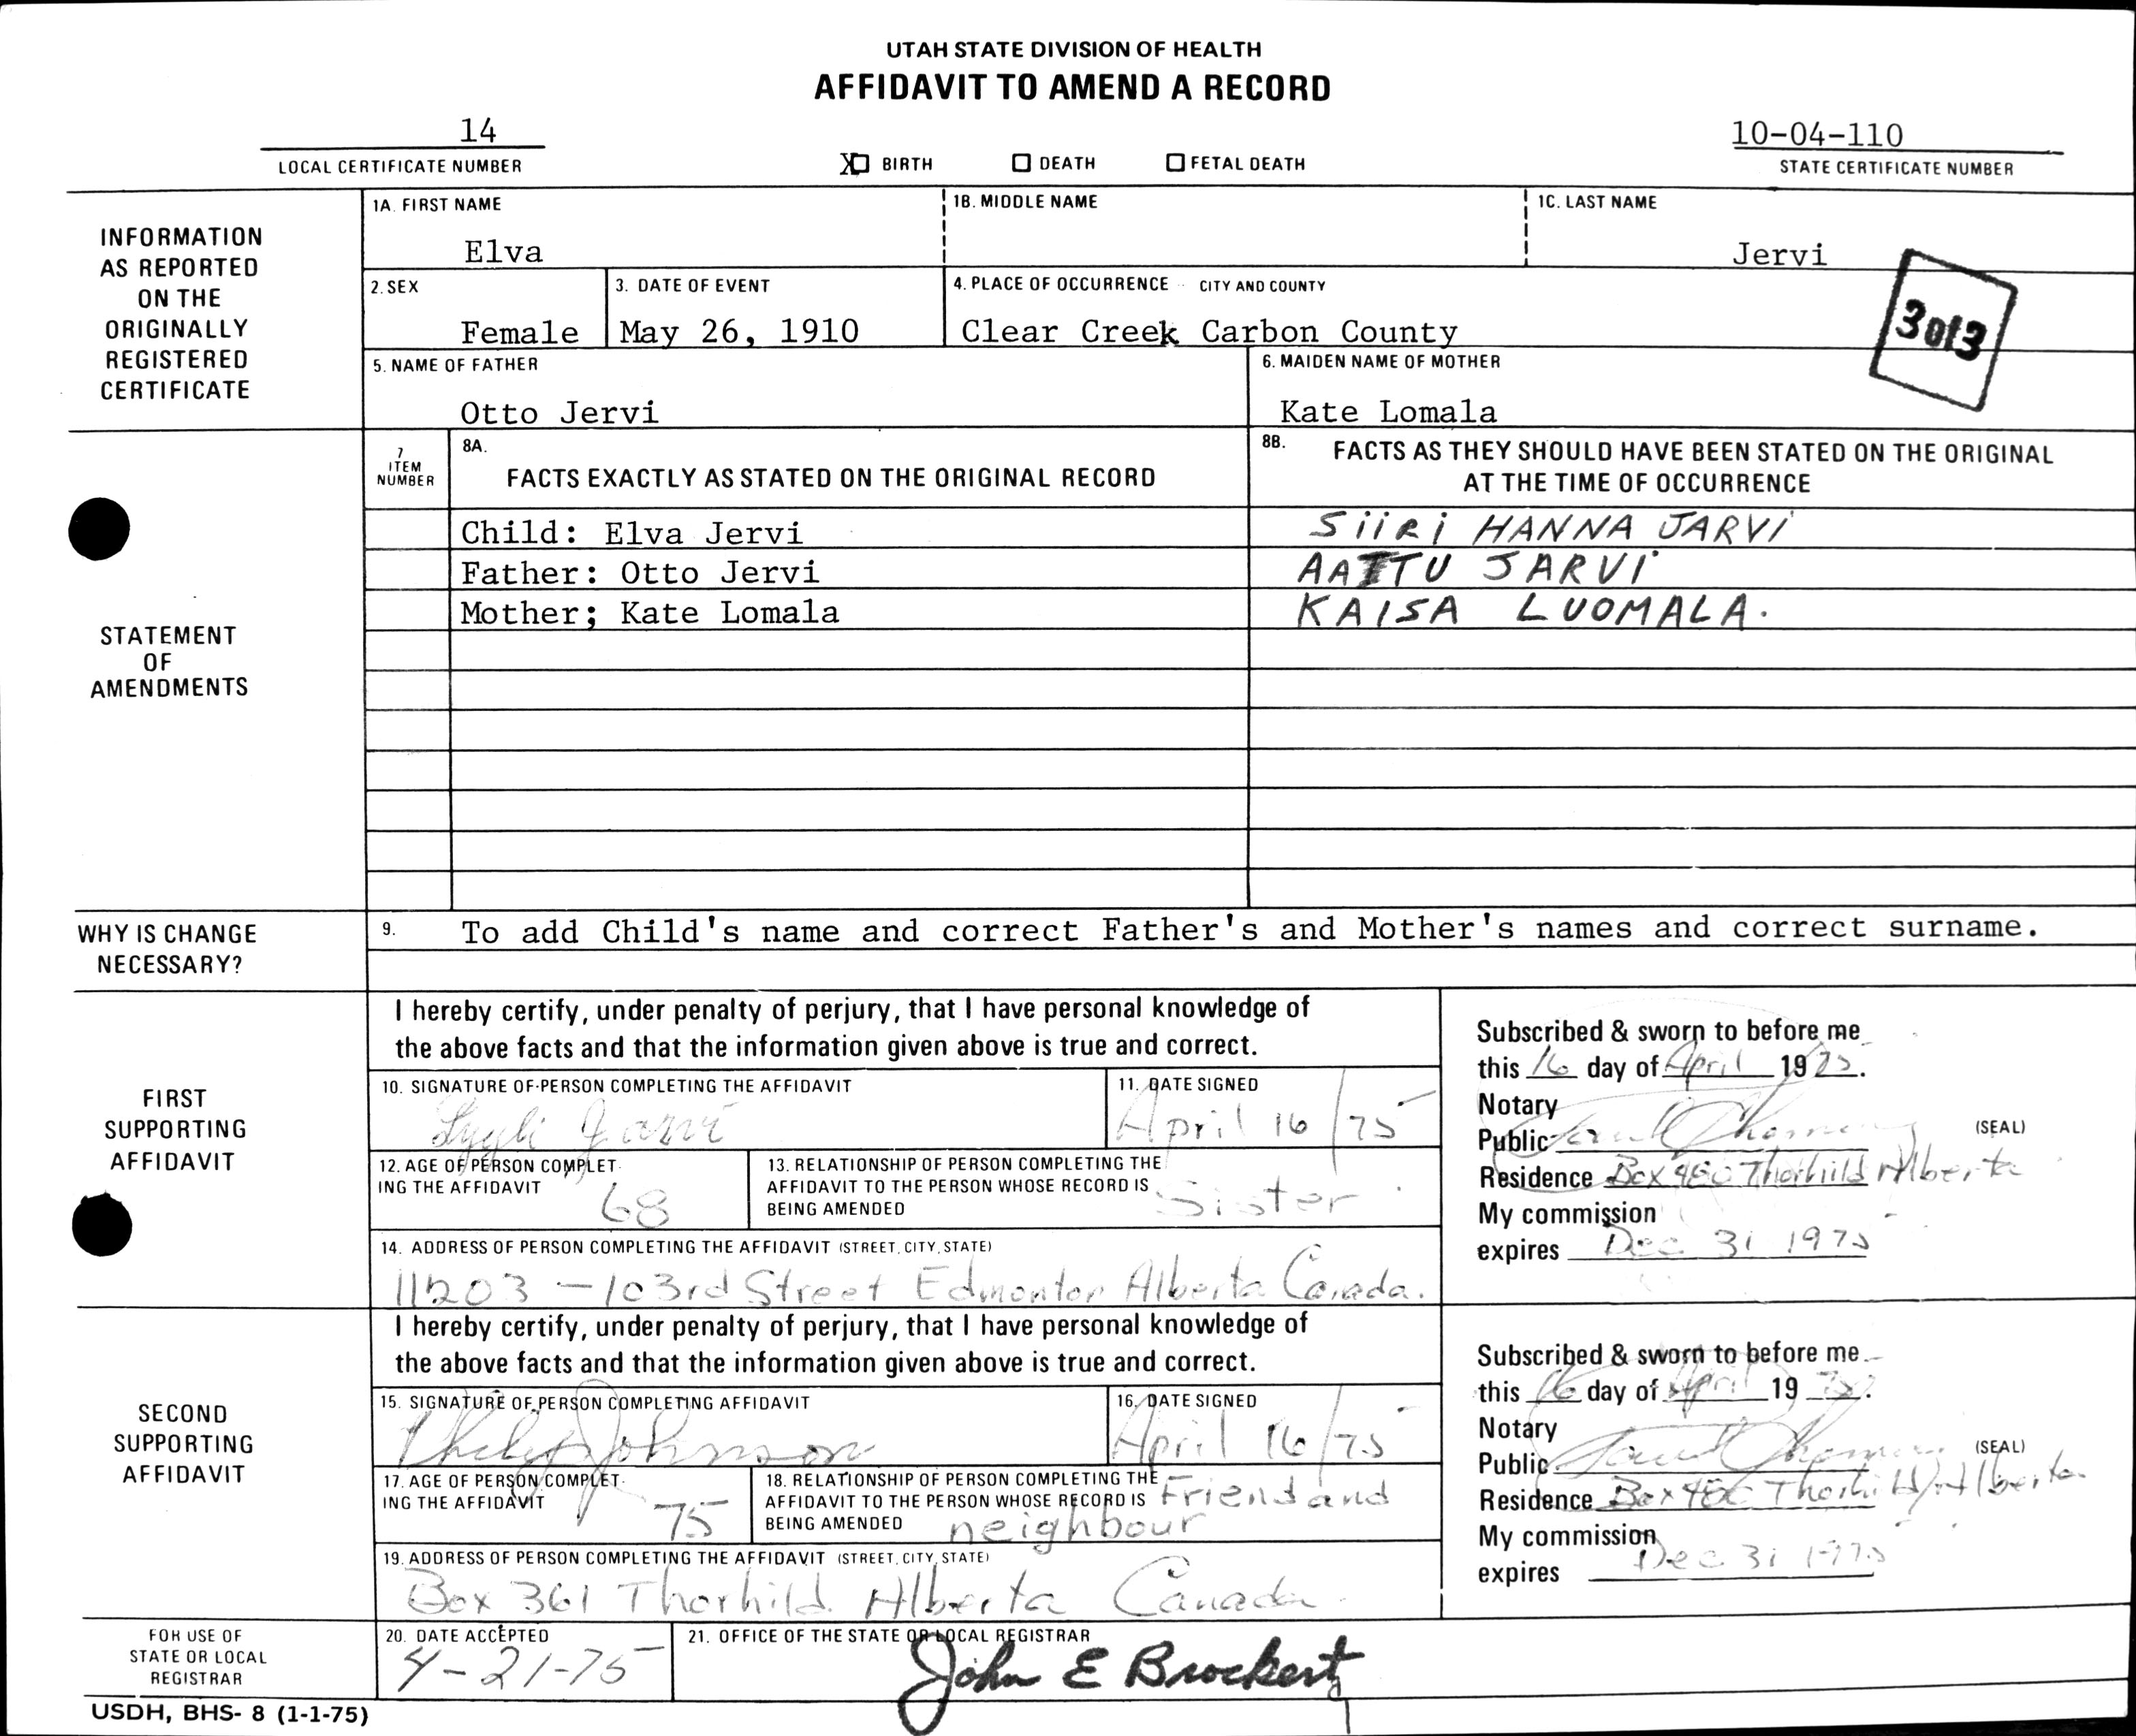 UTAH STATE DIVISION OF HEALTH
AFFIDAVIT TO AMEND A RECORD
14
LOCAL CERTIFICATE NUMBER
X BIRTH DEATH FETAL DEATH
10-04-110
STATE CERTIFICATE NUMBER
INFORMATION AS REPORTED ON THE ORIGINALLY REGISTERED CERTIFICATE
1A. FIRST NAME
Elva
1B. MIDDLE NAME
1C. LAST NAME
Jervi
2. SEX
Female
3. DATE OF EVENT
May 26, 1910
4. PLACE OF OCCURRENCE CITY AND COUNTY
Clear Creek Carbon County
3 of 3
5. NAME OF FATHER
Otto Jervi
6. MAIDEN NAME OF MOTHER
Kate Lomala
STATEMENT
OF
AMENDMENTS
7
ITEM
NUMBER
8A.
FACTS EXACTLY AS STATED ON THE ORIGINAL RECORD
8B. FACTS AS THEY SHOULD HAVE BEEN STATED ON THE ORIGINAL
AT THE TIME OF OCCURRENCE
Child: Elva Jervi
SiiRi HANNA JARVI
Father: Otto Jervi
AATTU JARVI
Mother; Kate Lomala
KAISA LUOMALA.
WHY IS CHANGE
NECESSARY?
9. To add Child's name and correct Father's and Mother's names and correct surname.
FIRST
SUPPORTING
AFFIDAVIT
I hereby certify, under penalty of perjury, that I have personal knowledge of
the above facts and that the information given above is true and correct.
10. SIGNATURE OF PERSON COMPLETING THE AFFIDAVIT
Lyyli Jarvi
11. DATE SIGNED
April 16/75
12. AGE OF PERSON COMPLET-
ING THE AFFIDAVIT
68
13. RELATIONSHIP OF PERSON COMPLETING THE
AFFIDAVIT TO THE PERSON WHOSE RECORD IS
BEING AMENDED
Sister
14. ADDRESS OF PERSON COMPLETING THE AFFIDAVIT (STREET, CITY, STATE)
11203 - 103rd Street Edmonton Alberta Canada.
Subscribed & sworn to before me
this 16 day of April 1975.
Notary
Public
(SEAL)
Residence Box 480 Thorhild Alberta
My commission
expires Dec 31 1975
SECOND
SUPPORTING
AFFIDAVIT
I hereby certify, under penalty of perjury, that I have personal knowledge of
the above facts and that the information given above is true and correct.
15. SIGNATURE OF PERSON COMPLETING AFFIDAVIT
Philip Johnson
16. DATE SIGNED
April 16/75
17. AGE OF PERSON COMPLET-
ING THE AFFIDAVIT
75
18. RELATIONSHIP OF PERSON COMPLETING THE
AFFIDAVIT TO THE PERSON WHOSE RECORD IS
BEING AMENDED
Friend and
neighbour
19. ADDRESS OF PERSON COMPLETING THE AFFIDAVIT (STREET, CITY, STATE)
Box 361 Thorhild Alberta Canada
Subscribed & sworn to before me
this 16 day of April 1975.
Notary
Public
(SEAL)
Residence Box 480 Thorhild Alberta
My commission
expires Dec 31 1975
FOR USE OF
STATE OR LOCAL
REGISTRAR
20. DATE ACCEPTED
4-21-75
21. OFFICE OF THE STATE OR LOCAL REGISTRAR
John E Brockert
USDH, BHS- 8 (1-1-75)